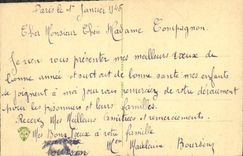 Paris le 1er Janvier 1945
Cher Monsieur Chère Madame Compagnon.
Je viens vous présenter mes meilleurs vœux de
bonne année et surtout de bonne santé mes enfants
se joignent à moi pour vous remercier de votre dévouement
pour les prisonniers et leurs familles.
Recevez Mes Meilleurs Amitiées et remerciements.
Mes Bons Vœux à votre famille
Mme Madeleine